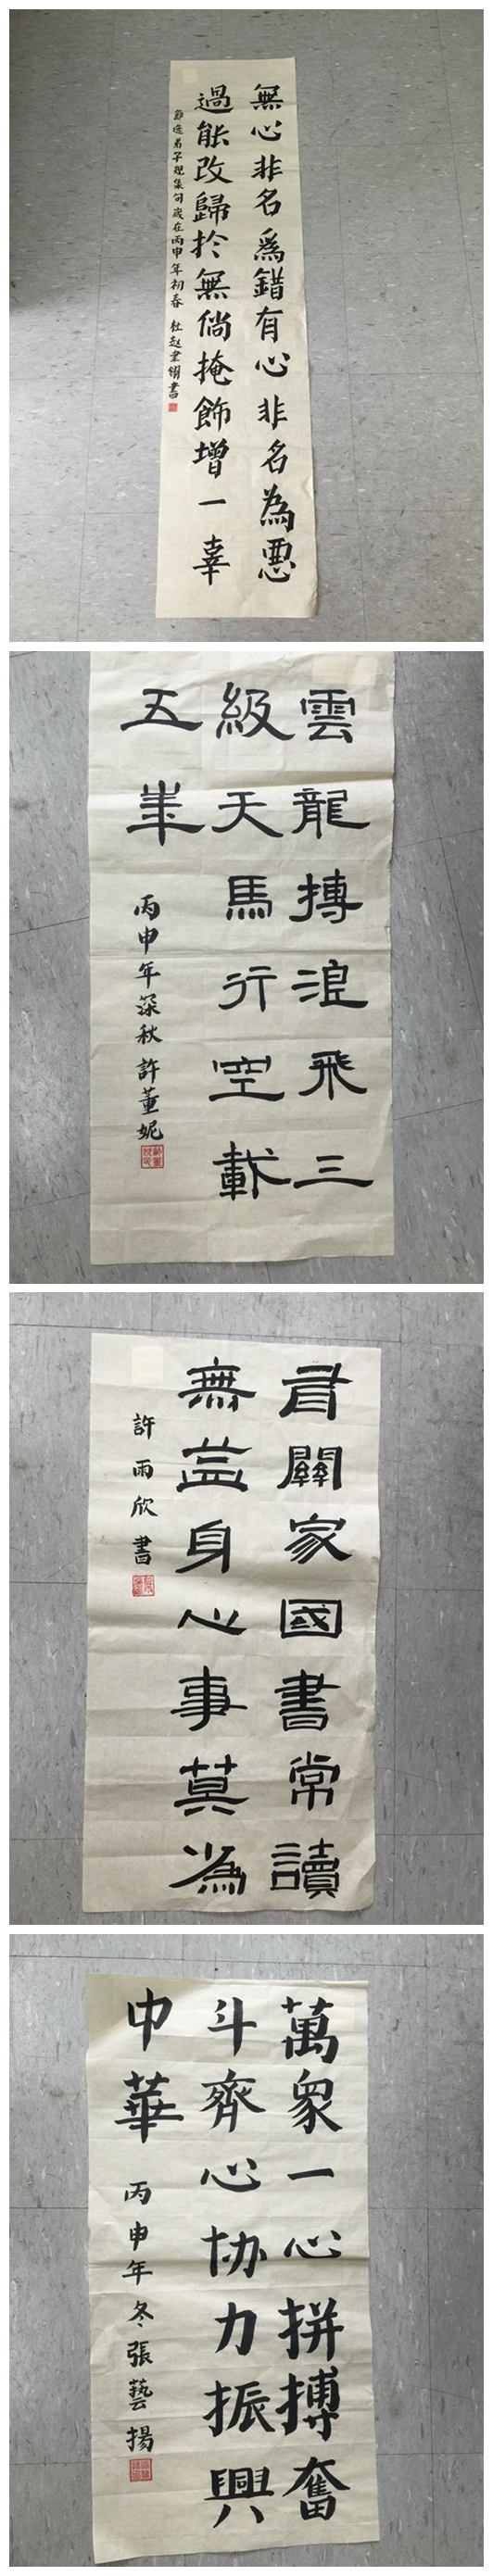 無心非名為錯有心非名為悪
過能改歸扵無倘掩飾增一辜
節選弟子規集句歲在丙申年初春 杜趙書
雲龍搏浪飛三
級天馬行空載
五峯
丙申年深秋許董妮
有關家國書常讀
無益身心事莫為
許雨欣書
萬象一心拼搏奮
斗齊心协力振興
中華
丙申年冬張藝揚